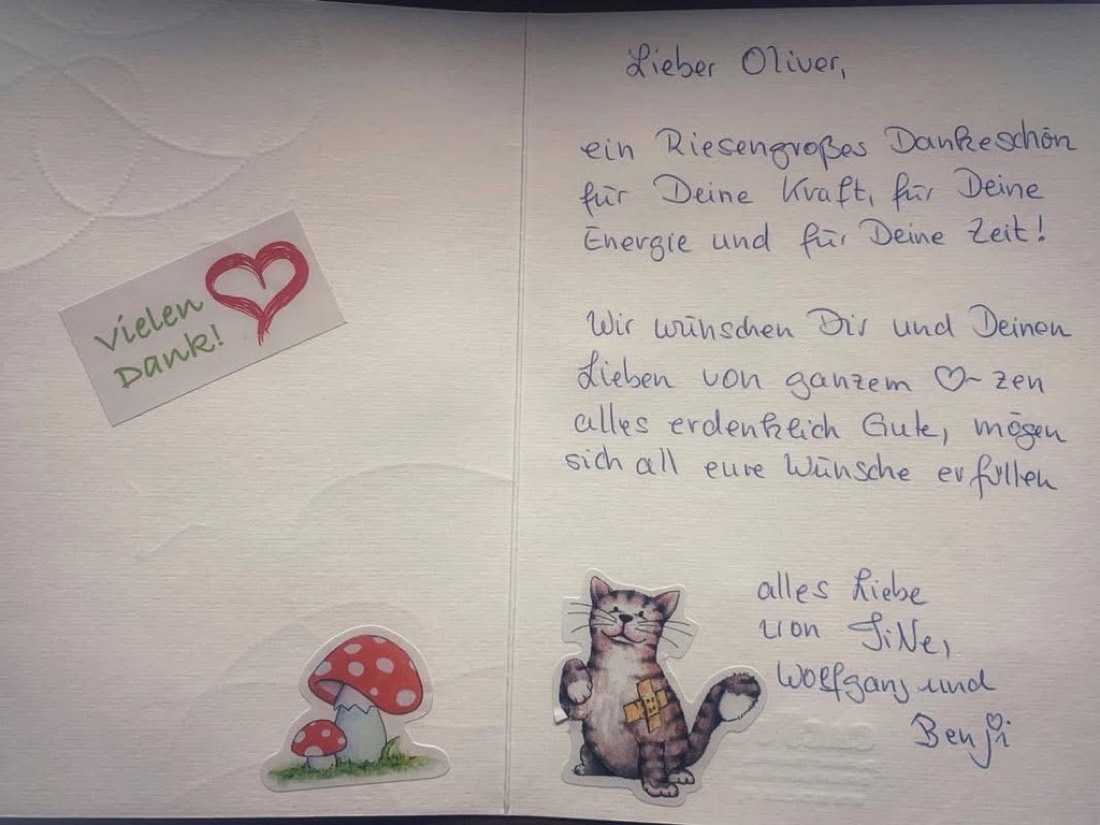 Vielen
Dank!
Lieber Oliver,
ein Riesengroßes Dankeschön
für Deine Kraft, für Deine
Energie und für Deine Zeit!
Wir wünschen Dir und Deinen
Lieben von ganzem ♡-zen
alles erdenklich Gute, mögen
sich all eure Wünsche erfüllen
alles Liebe
von SiNe,
Wolfgang und
Benji